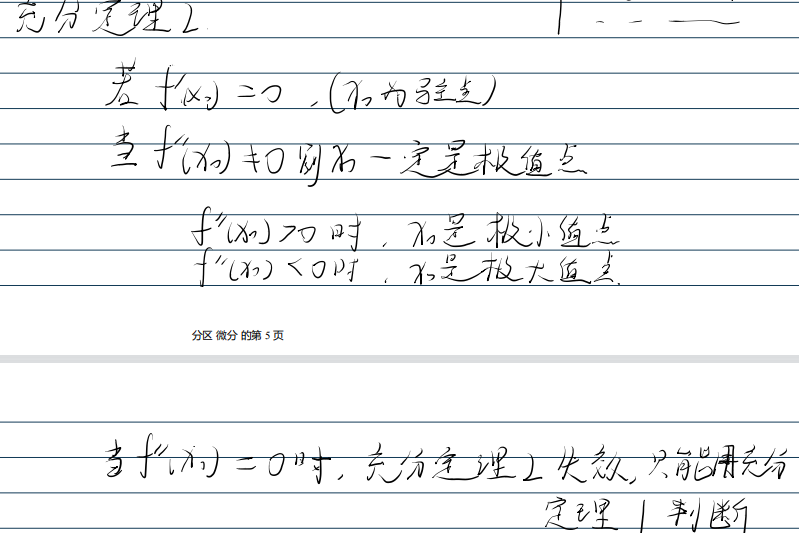 充分定理2
若 f'(x₀) = 0 ,(x₀为驻点)
当 f''(x₀) ≠ 0 则 x₀ 一定是极值点
f''(x₀) > 0 时 , x₀是 极小值点
f''(x₀) < 0 时 , x₀是极大值点
分区 微分 的第 5 页
当 f''(x₀) = 0 时, 充分定理2失效, 只能用充分
定理1判断